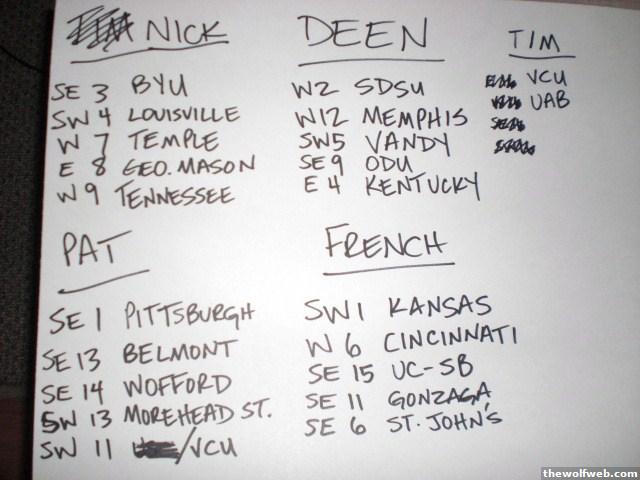 NICK
SE 3 BYU
SW 4 LOUISVILLE
W 7 TEMPLE
E 8 GEO. MASON
W 9 TENNESSEE
DEEN
W2 SDSU
W12 MEMPHIS
SW5 VANDY
SE 9 ODU
E 4 KENTUCKY
TIM
VCU
UAB
PAT
SE 1 PITTSBURGH
SE 13 BELMONT
SE 14 WOFFORD
SW 13 MOREHEAD ST.
SW 11 /VCU
FRENCH
SW1 KANSAS
W 6 CINCINNATI
SE 15 UC-SB
SE 11 GONZAGA
SE 6 ST. JOHN'S
thewolfweb.com